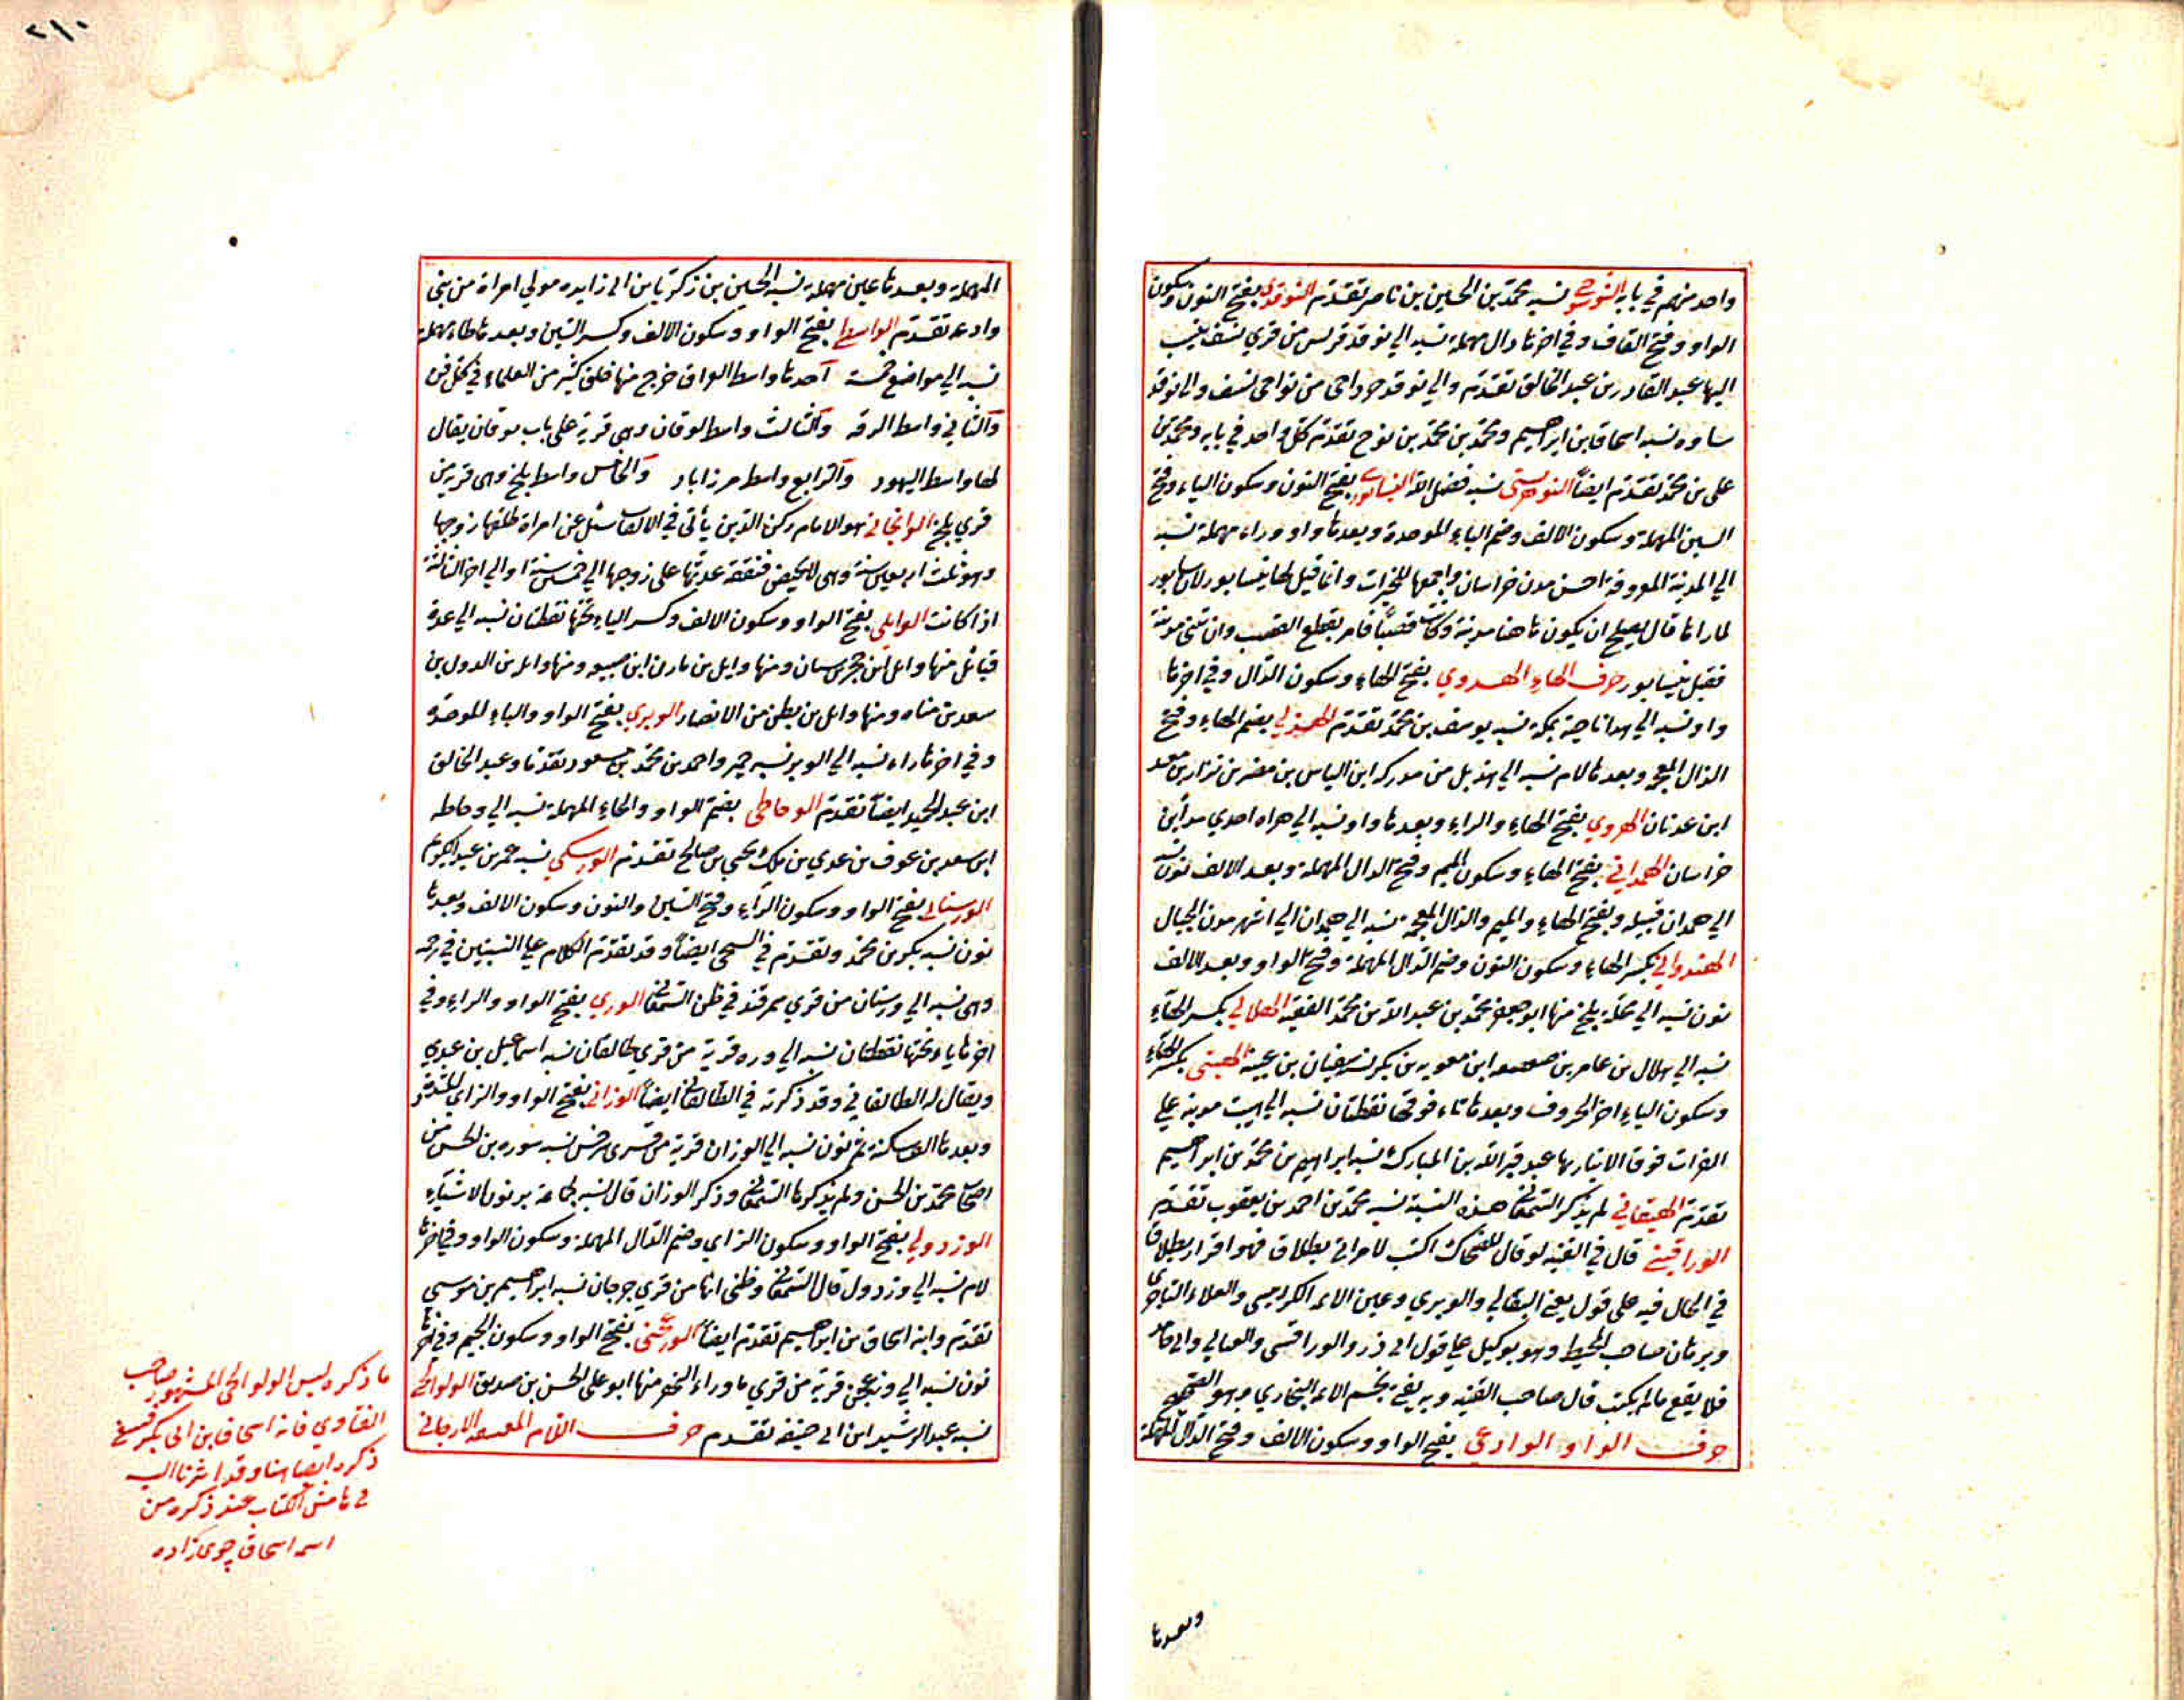 واحد منهم في بابه النوحي نسبه محمد بن الحسين بن ناصر تقدم النوقدي بفتح النون وسكون
الواو وفتح القاف وفي اخرها دال مهملة نسبه الي نوقد قريش من قري نسف ينسب
اليها عبد القادر بن عبد الخالق تقدم والي نوقد من نواحي نسف والي نوقد
ساوه نسبه اسحاق بن ابراهيم ومحمد بن محمد بن نوح تقدم كل واحد في بابه ومحمد بن
علي بن محمد تقدم ايضاً نسبه فضل الله النيسابوري بفتح النون وسكون الياء وفتح
السين المهملة وسكون الالف وضم الباء الموحدة وبعدها واو وراء مهملة نسبه
الي المدينة المعروفة احسن مدن خراسان واجمعها للخيرات وانما قيل لها نيسابور لان سابور
لما راها قال يصلح ان يكون هاهنا مدينة وكانت قصباً فامر بقطع القصب وان تبنى مدينة
فقيل نيسابور حرف الهاء الهدوي بفتح الهاء وسكون الدال وفي اخرها
واو نسبه الي ناحية بمكة نسبه يوسف بن محمد تقدم الهذلي بضم الهاء وفتح
الذال المعجمة وبعدها لام نسبه الي هذيل من مدركه ابن الياس بن مضر بن نزار بن معد
ابن عدنان الهروي بفتح الهاء والراء وبعدها واو نسبه الي هراه احدي مداين
خراسان الهمداني بفتح الهاء وسكون الميم وفتح الدال المهملة وبعد الالف نون نسبه
الي همدان قبيله وبفتح الهاء والميم والذال المعجمة نسبه الي همدان الي اشهر مدن الجبال
الهندواني بكسر الهاء وسكون النون وضم الدال المهملة وفتح الواو وبعد الالف
نون نسبه الي محلة بلخ منها ابو جعفر محمد بن عبد الله بن محمد الفقيه الهلالي بكسر الهاء
نسبه الي هلال بن عامر بن صعصعه ابن معويه بن بكر نسبه سفيان بن عيينة الهيتي بكسر الهاء
وسكون الياء اخر الحروف وبعدها تاء فوقها نقطتان نسبه الي هيت مدينة علي
الفرات فوق الانبار بها قبر عبد الله بن المبارك نسبه ابراهيم بن محمد بن ابراهيم
تقدم الهيقاني لم يذكر السمعاني هذه النسبة نسبه محمد بن احمد بن يعقوب تقدم
قال في القنيه لو قال للضحاك اكتب لامراتي بطلاق فهو اقرار بطلاق
في الحال فيه علي قول يعني البقالي والوبري وعين الائمه الكرابيسي والعلاء التاجري
وبرهان صاحب المحيط وهو بوكيل علي قول ابي ذر
فلا يقع مالم يكتب قال صاحب القنيه وبه يفتي نجم الائمه البخاري وهو الصحيح
حرف الواو الوادعي بفتح الواو وسكون الالف وفتح الدال المهملة
وبعدها
٢١٠
المهملة وبعدها عين مهملة نسبه الحسين بن زكريا بن ابي زايده مولي امراة من بني
وادعه تقدم الواسطي بفتح الواو وسكون الالف وكسر السين وبعدها طاء مهملة
نسبه الي مواضع خمسة احدها واسط العراق خرج منها خلق كثير من العلماء في كل فن
والثاني واسط الرقه والثالث واسط نوقان وهي قرية علي باب نوقان يقال
لها واسط اليهود والرابع واسط مرزاباد والخامس واسط بلخ وهي قرية من
قري بلخ الوانجاني هو الامام ركن الدين ياتي في الالقاب سئل عن امراة طلقها زوجها
اذا كانت الوايلي بفتح الواو وسكون الالف وكسر الياء تحتها نقطتان نسبه الي عدة
قبائل منها وايل ومنها وايل بن مازن ومنها وايل بن الدول بن
سعد بن مناه ومنها وايل بن بطن من الانصار الوبري بفتح الواو والباء الموحدة
وفي اخرها راء نسبه الي الوبر نسبه واحمد بن محمد بن مسعود تقدما وعبد الخالق
ابن عبد الحميد ايضاً تقدم الوحاطي بضم الواو والحاء المهملة نسبه الي وحاطه
ابن سعد بن عوف بن عدي بن مالك يحيي بن صالح تقدم الورسكي نسبه عمر بن عبد الكريم
الورسناني بفتح الواو وسكون الراء وفتح السين والنون وسكون الالف وبعدها
نون نسبه بكر بن محمد وتقدم في ايضاً وقد تقدم الكلام علي النسبتين في ترجمه
وهي نسبه الي ورسنان من قري سمرقند في ظن السمعاني الوري بفتح الواو والراء وفي
اخرها ياء تحتها نقطتان نسبه الي وره قرية من قري طالقان نسبه اسماعيل بن عبدي
ويقال له الطالقاني وقد ذكرته في الطالقاني ايضاً الوزاني بفتح الواو والزاي المشددة
وبعدها الف ساكنة ثم نون نسبه الي الوزان قرية من قري سرخس نسبه سوره بن الحسن من
اصحاب محمد بن الحسن ولم يذكرها السمعاني وذكر الوزان قال نسبه لجماعة يزنون الاشياء
الوزدولي بفتح الواو وسكون الزاي وضم الدال المهملة وسكون الواو وفي اخرها
لام نسبه الي وزدول قال السمعاني وظني انها من قري جرجان نسبه ابراهيم بن موسى
تقدم وابنه اسحاق بن ابراهيم تقدم ايضاً بفتح الواو وسكون الجيم وفي اخرها
نون نسبه الي قرية من قري ما وراء النهر منها ابو علي الحسن بن صديق الولوالجي
نسبه عبد الرشيد ابن ابي حنيفه تقدم حرف اللام
ما ذكره ليس الولوالجي المشهور صاحب
الفتاوي فانه اسحاق بن ابي بكر
ذكره ايضا هنا وقد اشرنا اليه
في هامش الكتاب عند ذكره من
اسمه اسحاق چوي زاده